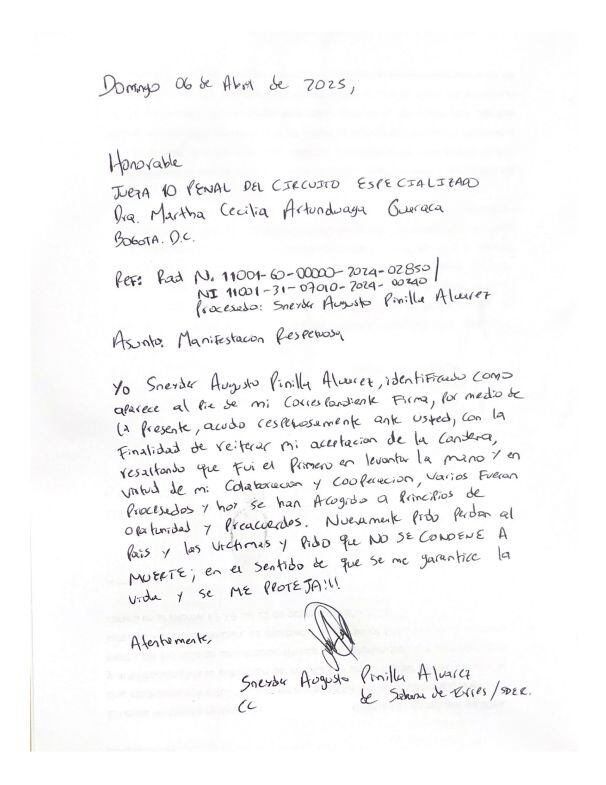 Domingo 06 de Abril de 2025,
Honorable
JUEZA 10 PENAL DEL CIRCUITO ESPECIALIZADO
Dra. Martha Cecilia Artunduaga Guaraca
BOGOTA. D.C.
REF: Rad N. 11001-60-00000-2024-02850/
NI 11001-31-07010-2024-00240
Procesado: Sneyder Augusto Pinilla Alvarez
Asunto: Manifestacion Respetuosa
Yo Sneyder Augusto Pinilla Alvarez, identificado como
aparece al pie de mi correspondiente Firma, por medio de
la presente, acudo respetuosamente ante usted, con la
Finalidad de reiterar mi aceptacion de la condena,
resaltando que fui el Primero en levantar la mano y en
virtud de mi Colaboracion y Cooperacion, varios Fueron
Procesados y hoy se han Acogido a Principios de
Oportunidad y Preacuerdos. Nuevamente Pido Perdon al
Pais y las Victimas y Pido que NO SE CONDENE A
MUERTE; en el sentido de que se me garantice la
vida y se ME PROTEJA!!!
Atentamente,
Sneyder Augusto Pinilla Alvarez
CC de Sabana de Torres / SDER.